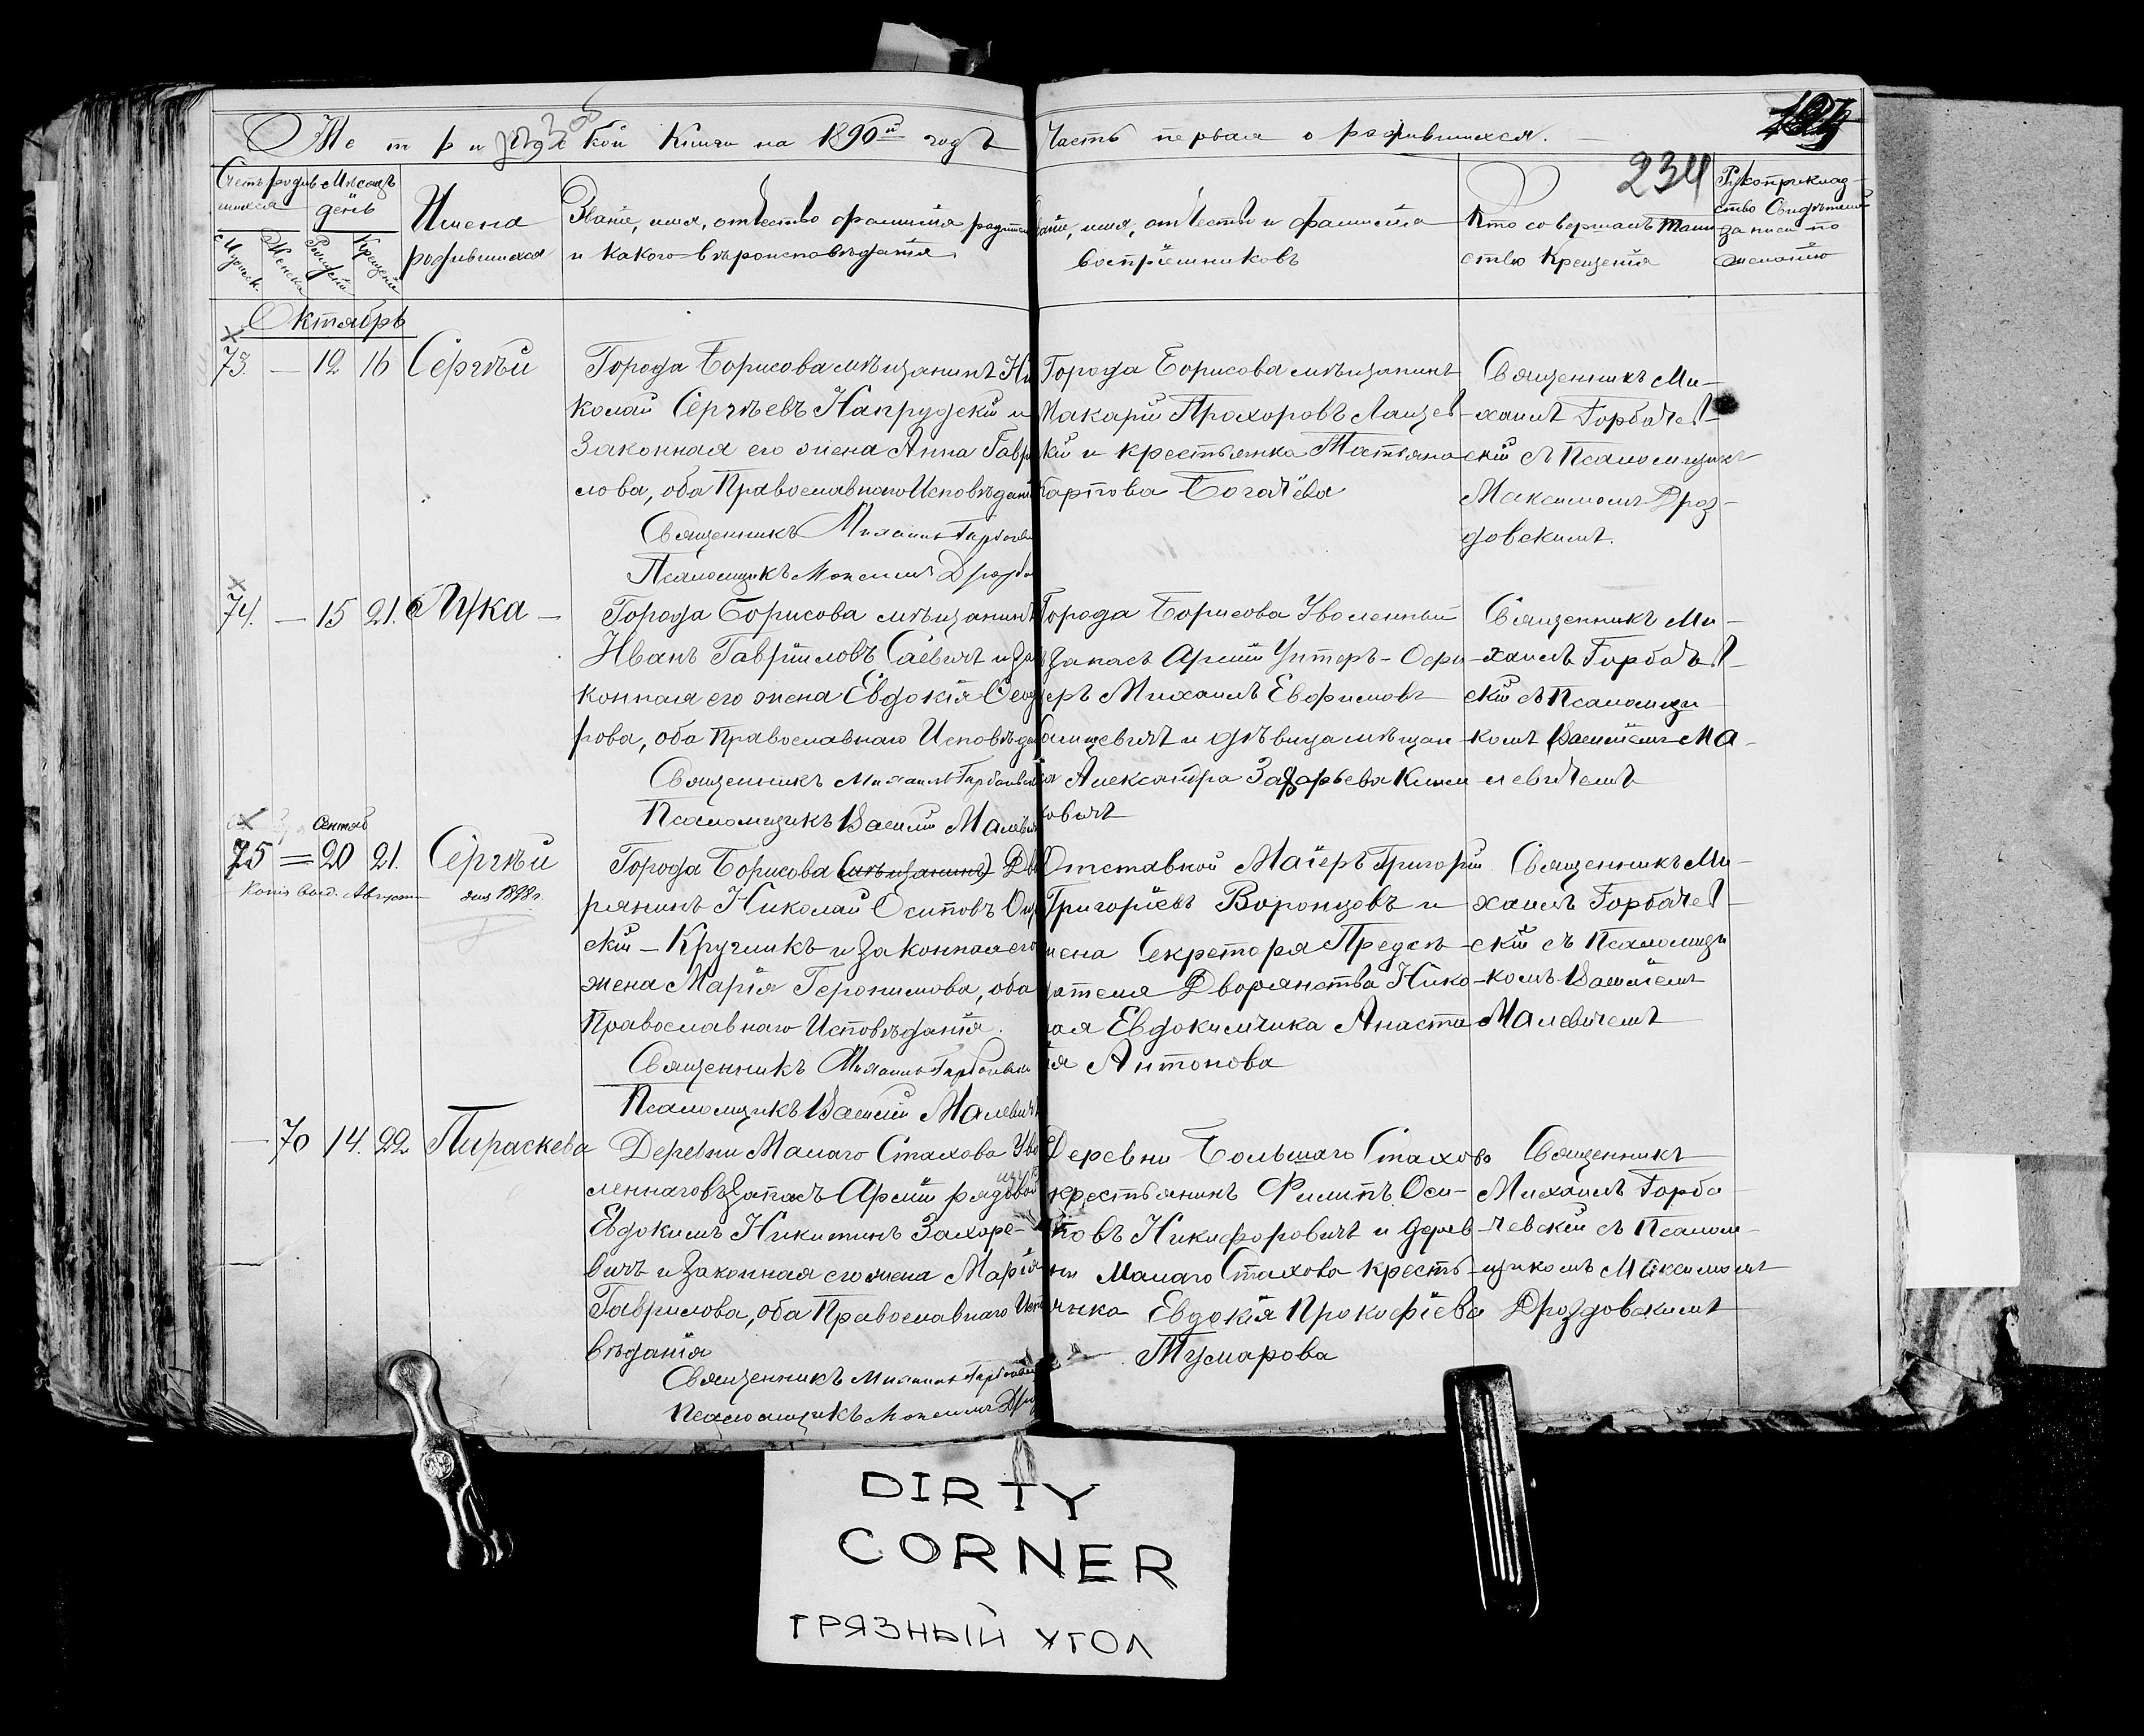 Метрической Книги на 1890й годъ
Часть первая о родившихся.
234
Счетъ родив
шихся
Мѣсяцъ
день
Имена
родившихся
Званіе, имя, отчество фамилія
и какого вѣроисповѣданія
имя, отчество и фамилія
воспріемниковъ
Кто совершалъ Таин
ство Крещенія
Рукоприклад
ство Свидѣтелей
записи по
желанію
Мужск.
Женска
Рожденія
Крещенія
Октябрь
73. — 12 16 Сергѣй
Города Борисова мѣщанинъ Ни
колай Сергѣевъ Напрудскій и
Законная его жена Анна Гавр
лова, оба Православнаго Исповѣдан
Священникъ Михаилъ Горбачев
Псаломщикъ Максимъ Дроздо
Города Борисова мѣщанинъ
Макарій Прохоровъ Лащев
кій и крестьянка Татьяна
Карпова Богачева
Священникъ Ми-
хаилъ Горбачев-
скій съ Псаломщик
Максимомъ Дроз-
довскимъ.
74. — 15 21. Лука —
Города Борисова мѣщанинъ
Иванъ Гавріиловъ Саевичъ и За
конная его жена Евдокія Сид
рова, оба Православнаго Исповѣда
Священникъ Михаилъ Горбачевск
Псаломщикъ Василій Малевич
Города Борисова Уволенный
въ Запасъ Арміи Унтеръ-Офи
церъ Михаилъ Евфимовъ
и дѣвица мѣщан
ка Александра Захарьева Клим
ковичъ
Священникъ Ми-
хаилъ Горбачев-
скій съ Псаломщи
комъ Василіемъ Ма-
левичемъ
Сентяб
75 = 20 21. Сергѣй
Копія выд. Август
дня 1898г.
Города Борисова (мѣщанинъ) Дво
рянинъ Николай Осиповъ
скій-Кругликъ и Законная его
жена Марія Іеронимова, оба
Православнаго Исповѣданія.
Священникъ Михаилъ Горбачевски
Псаломщикъ Василій Малевичъ
Отставной Маіеръ Григорій
Григоріевъ Воронцовъ и
жена Секретаря Предсѣ
дателя Дворянства Нико
лая Евдокимчика Анаста
сія Антонова
Священникъ Ми-
хаилъ Горбачев-
скій съ Псаломщи
комъ Василіемъ
Малевичемъ
— 70 14. 22 Параскева
Деревни Малаго Стахова Уво
леннаго въ Запасъ Арміи рядовой
Евдокимъ Никитинъ Захаре-
вичъ и Законная его жена Марія
Гаврилова, оба Православнаго Испо
вѣданія
Священникъ Михаилъ Горбачев
Псаломщикъ Максимъ Дроз
Деревни Большаго Стахова
крестьянинъ Филипъ Оси-
повъ Никифоровичъ и дерев-
ни Малаго Стахова кресть-
янка Евдокія Прокофіева
Тумарова
Священникъ
Михаилъ Горба
чевскій съ Псалом-
щикомъ Максимомъ
Дроздовскимъ
DIRTY
CORNER
ГРЯЗНЫЙ УГОЛ